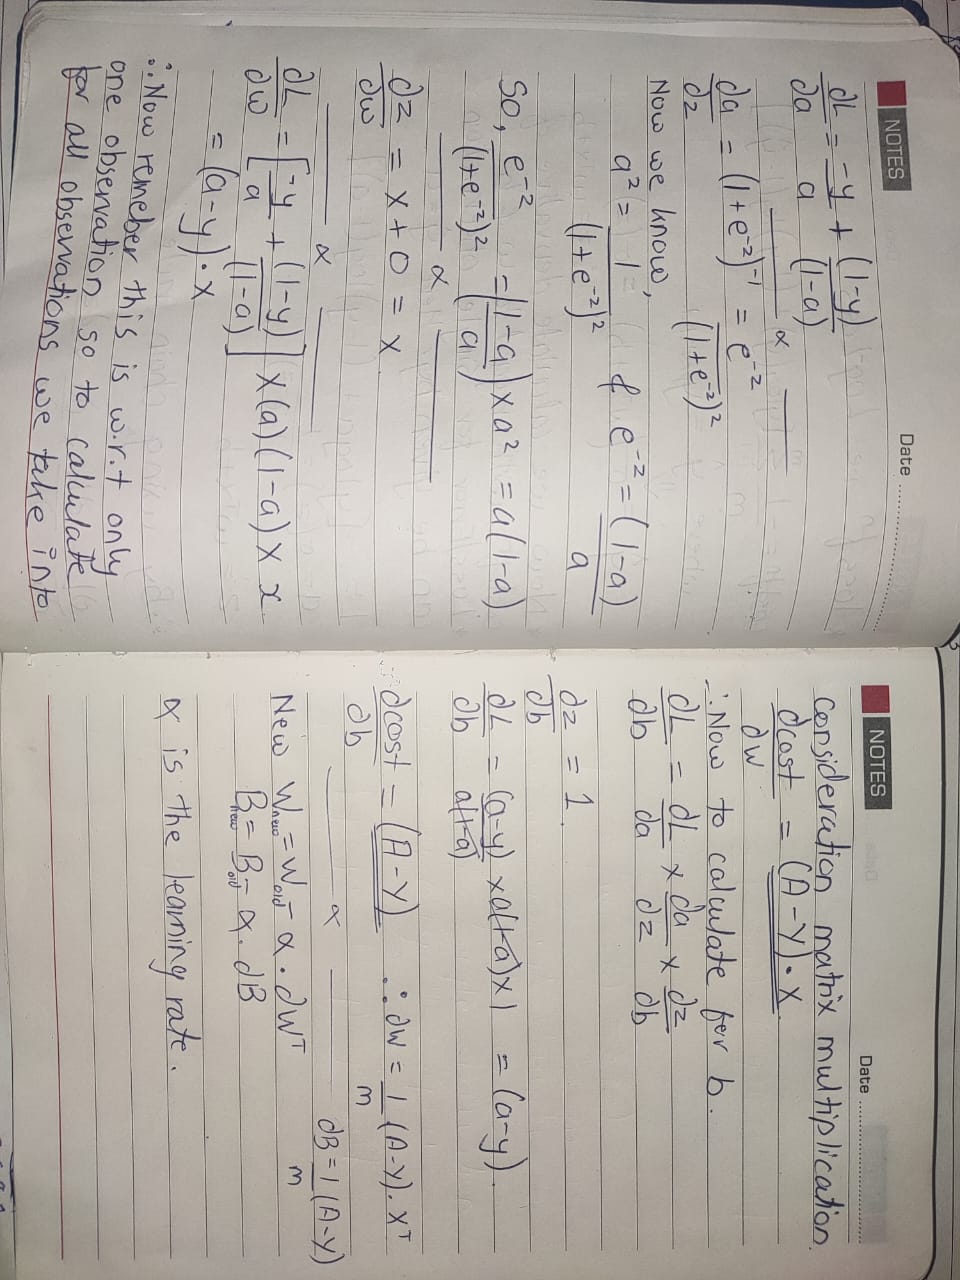 NOTES
Date
dL/da = -y/a + (1-y)/(1-a)
α
da/dz = (1+e^-z)^-1 = e^-z/(1+e^-z)²
Now we know,
a² = 1/(1+e^-z)² & e^-z = (1-a)/a
So, e^-z/(1+e^-z)² = (1-a/a) × a² = a(1-a)
α
dz/dw = x + 0 = x
α
dL/dw = [-y/a + (1-y)/(1-a)] × (a)(1-a) × x
= (a-y)·x
∴ Now remeber this is w.r.t only
one observation so to calculate
for all observations we take into
NOTES
Date
consideration matrix multiplication.
dcost/dw = (A-Y)·X
∴ Now to calculate for b.
dL/db = dL/da × da/dz × dz/db
dz/db = 1.
dL/db = (a-y)/a(1-a) × a(1-a) × 1 = (a-y).
dcost/db = (A-Y) ∴ dw = 1/m (A-Y)·X^T
α dB = 1/m (A-Y)
New W_new = W_old - α·dW^T
B_new = B_old - α·dB
α is the learning rate.